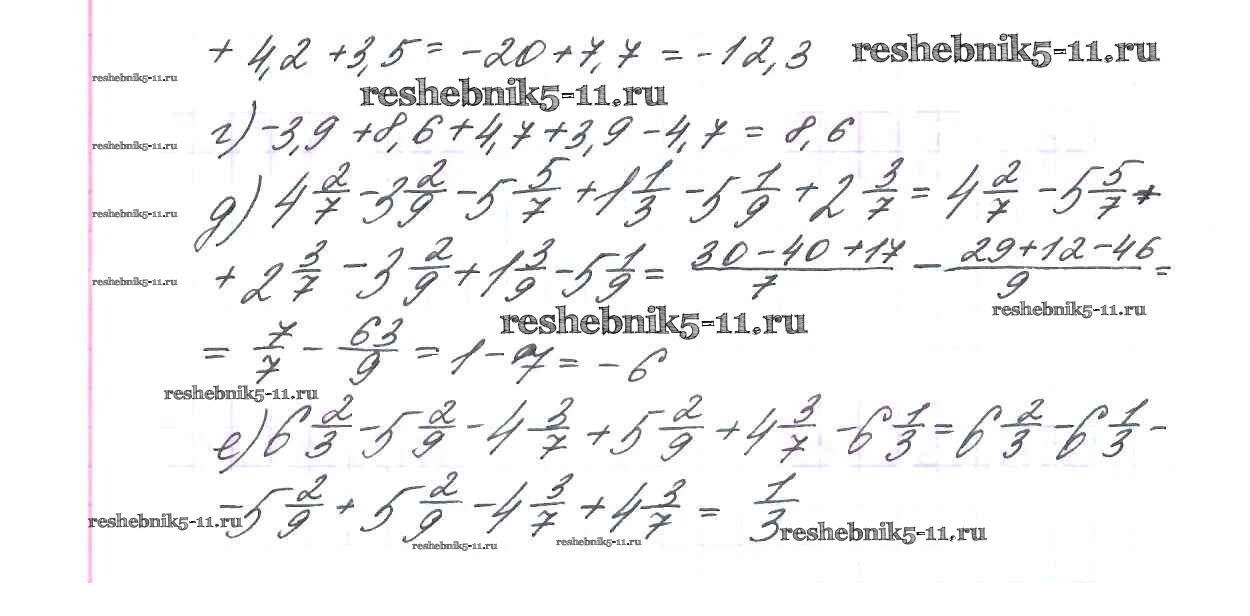 + 4,2 + 3,5 = -20 + 7,7 = -12,3 reshebnik5-11.ru
reshebnik5-11.ru
reshebnik5-11.ru
г) -3,9 + 8,6 + 4,7 + 3,9 - 4,7 = 8,6
reshebnik5-11.ru
д) 4 2/7 - 3 2/9 - 5 5/7 + 1 1/3 - 5 1/9 + 2 3/7 = 4 2/7 - 5 5/7 +
reshebnik5-11.ru
+ 2 3/7 - 3 2/9 + 1 3/9 - 5 1/9 = (30 - 40 + 17)/7 - (29 + 12 - 46)/9 =
reshebnik5-11.ru
reshebnik5-11.ru
reshebnik5-11.ru
= 7/7 - 63/9 = 1 - 7 = -6
reshebnik5-11.ru
е) 6 2/3 - 5 2/9 - 4 3/7 + 5 2/9 + 4 3/7 - 6 1/3 = 6 2/3 - 6 1/3 -
- 5 2/9 + 5 2/9 - 4 3/7 + 4 3/7 = 1/3
reshebnik5-11.ru
reshebnik5-11.ru
reshebnik5-11.ru
reshebnik5-11.ru